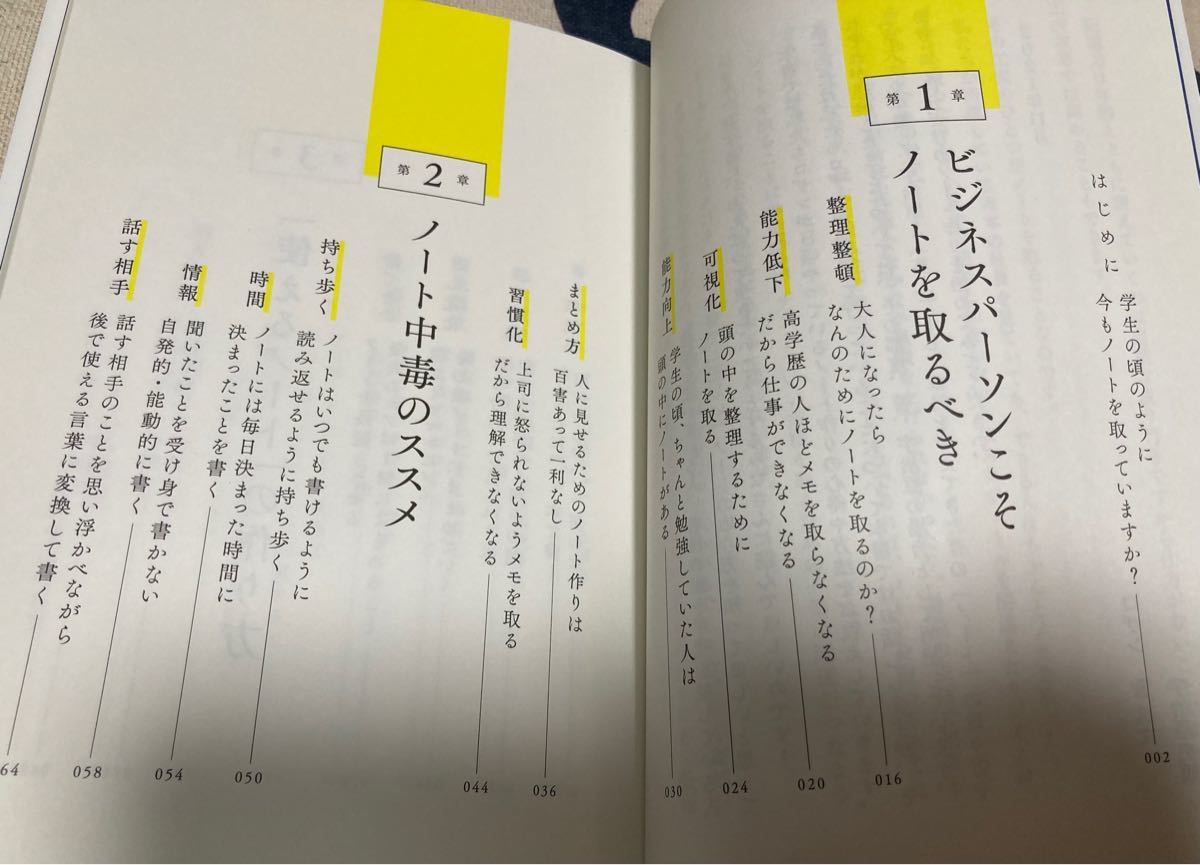 はじめに
学生の頃のように
今もノートを取っていますか?
002
第1章
ビジネスパーソンこそ
ノートを取るべき
整理整頓
大人になったら
なんのためにノートを取るのか?
016
能力低下
高学歴の人ほどメモを取らなくなる
だから仕事ができなくなる
020
可視化
頭の中を整理するために
ノートを取る
024
能力向上
学生の頃、ちゃんと勉強していた人は
頭の中にノートがある
030
まとめ方
人に見せるためのノート作りは
百害あって一利なし
036
習慣化
上司に怒られないようメモを取る
だから理解できなくなる
044
第2章
ノート中毒のススメ
持ち歩く
ノートはいつでも書けるように
読み返せるように持ち歩く
050
時間
ノートには毎日決まった時間に
決まったことを書く
054
情報
聞いたことを受け身で書かない
自発的・能動的に書く
058
話す相手
話す相手のことを思い浮かべながら
後で使える言葉に変換して書く
64